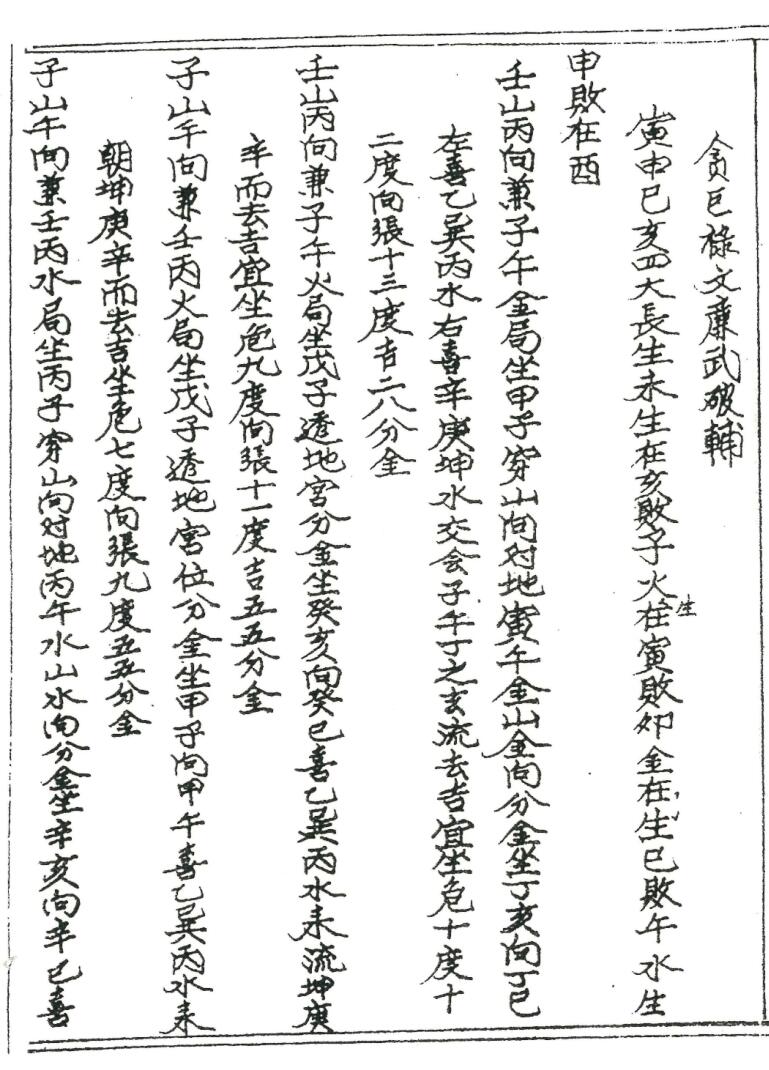 貪巨祿文廉武破輔
寅申巳亥四大長生未生在亥敗子火生在寅敗卯金在生巳敗午水生
申敗在酉
壬山丙向兼子午金局坐甲子穿山向对地寅午金山金向分金坐丁亥向丁巳
左喜乙巽丙水右喜辛庚坤水交会子午丁之玄流去吉宜坐危十度十
二度向張十三度吉二八分金
壬山丙向兼子午火局坐戊子透地宮分金坐癸亥向癸巳喜乙巽丙水来流坤庚
辛而去吉宜坐危九度向張十一度吉五五分金
子山午向兼壬丙火局坐戊子透地宮位分金坐甲子向甲午喜乙巽丙水来
朝坤庚辛而去吉坐危七度向張九度五五分金
子山午向兼壬丙水局坐丙子穿山向对地丙午水山水向分金坐辛亥向辛巳喜